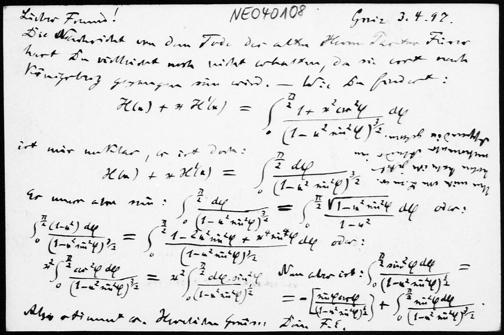 Lieber Freund!
NE040108
Greiz 3.4.97.
Die Nachricht von dem Tode des alten Herrn Pastor
hast Du vielleicht noch nicht erhalten, da sie erst nach
Königsberg gegangen sein wird. — Wie Du findest:
H(κ) + κ H'(κ) = ∫_0^{π/2} (1 + κ² cos²φ)/(1-κ² sin²φ)^{3/2} dφ
ist mir unklar, es ist doch:
H(κ) + κ H'(κ) = ∫_0^{π/2} dφ/(1-κ² sin²φ)^{3/2}
Es muss also sein: ∫_0^{π/2} dφ/(1-κ² sin²φ)^{3/2} = ∫_0^{π/2} √(1-κ² sin²φ)/(1-κ²) dφ oder:
∫_0^{π/2} (1-κ²) dφ/(1-κ² sin²φ)^{3/2} = ∫_0^{π/2} (1-2κ² sin²φ + κ⁴ sin⁴φ)/(1-κ² sin²φ)^{3/2} dφ oder:
κ² ∫_0^{π/2} cos²φ dφ/(1-κ² sin²φ)^{3/2} = κ² ∫_0^{π/2} dφ sin²φ/(1-κ² sin²φ)^{1/2}
Nun aber ist: ∫_0^{π/2} sin²φ dφ/(1-κ² sin²φ)^{1/2} =
= -[sinφ cosφ/(1-κ² sin²φ)^{1/2}] + ∫_0^{π/2} cos²φ dφ/(1-κ² sin²φ)^{3/2}.
Also stimmt es. Herzlichen Gruss. Dein F.E.